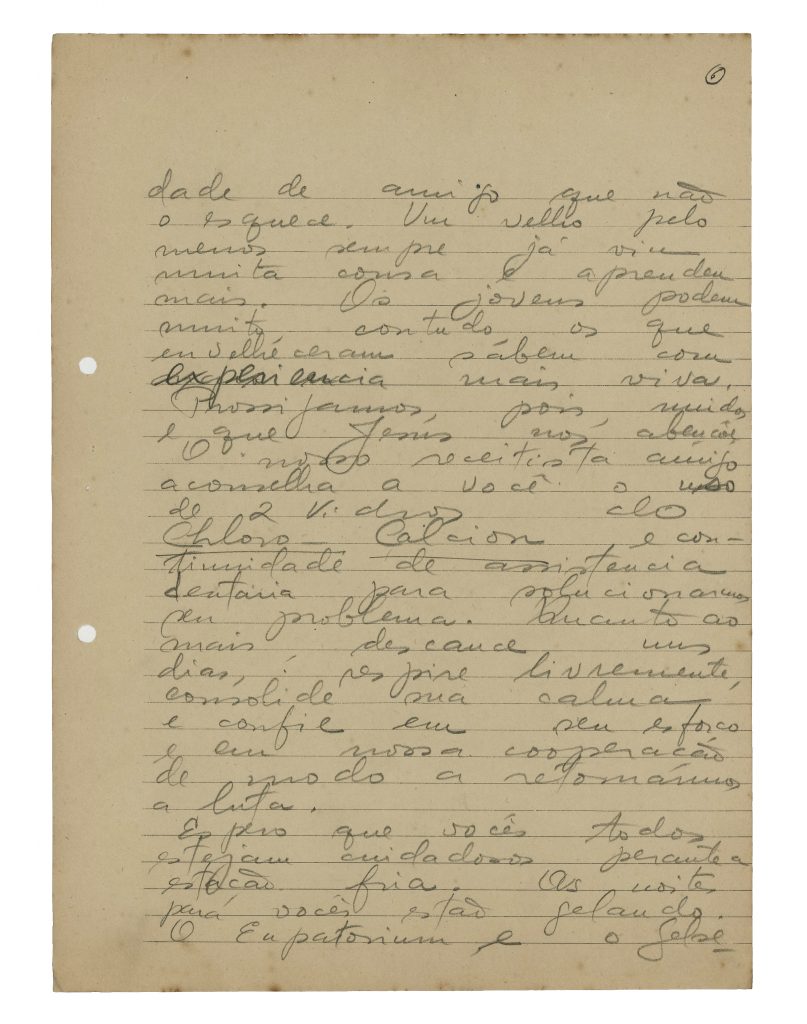 6
dade de amigo que não
o esquece. Um velho pelo
menos sempre já viu
muita cousa e aprendeu
mais. Os jovens podem
muito, contudo os que
envelhéceram sábem com
experiencia mais viva.
Prossigamos, pois, unidos
e que Jesús nos abençôe.
O nosso receitista amigo
aconselha a você o uso
de 2 vidros do
Chloro-Calcion e con-
tinuidade de assistencia
dentária para solucionarmos
seu problema. Quanto ao
mais descance uns
dias, respire livremente,
consolide sua calma
e confie em seu esforco
e em nossa cooperação
de modo a retomármos
a luta.
Espero que vocês todos
estejam cuidadosos perante a
estação fria. As noites
pará vocês estão gelando.
O Eupatorium e o Gelse